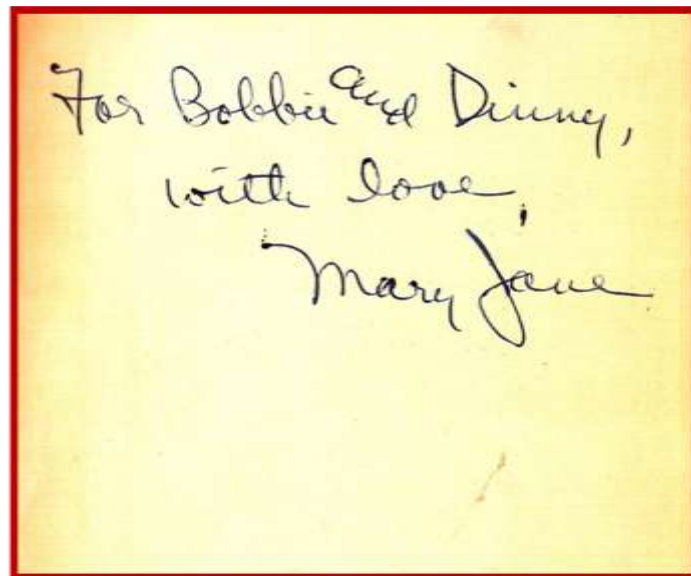 For Bobbie and Dinny,
with love,
Mary Jane